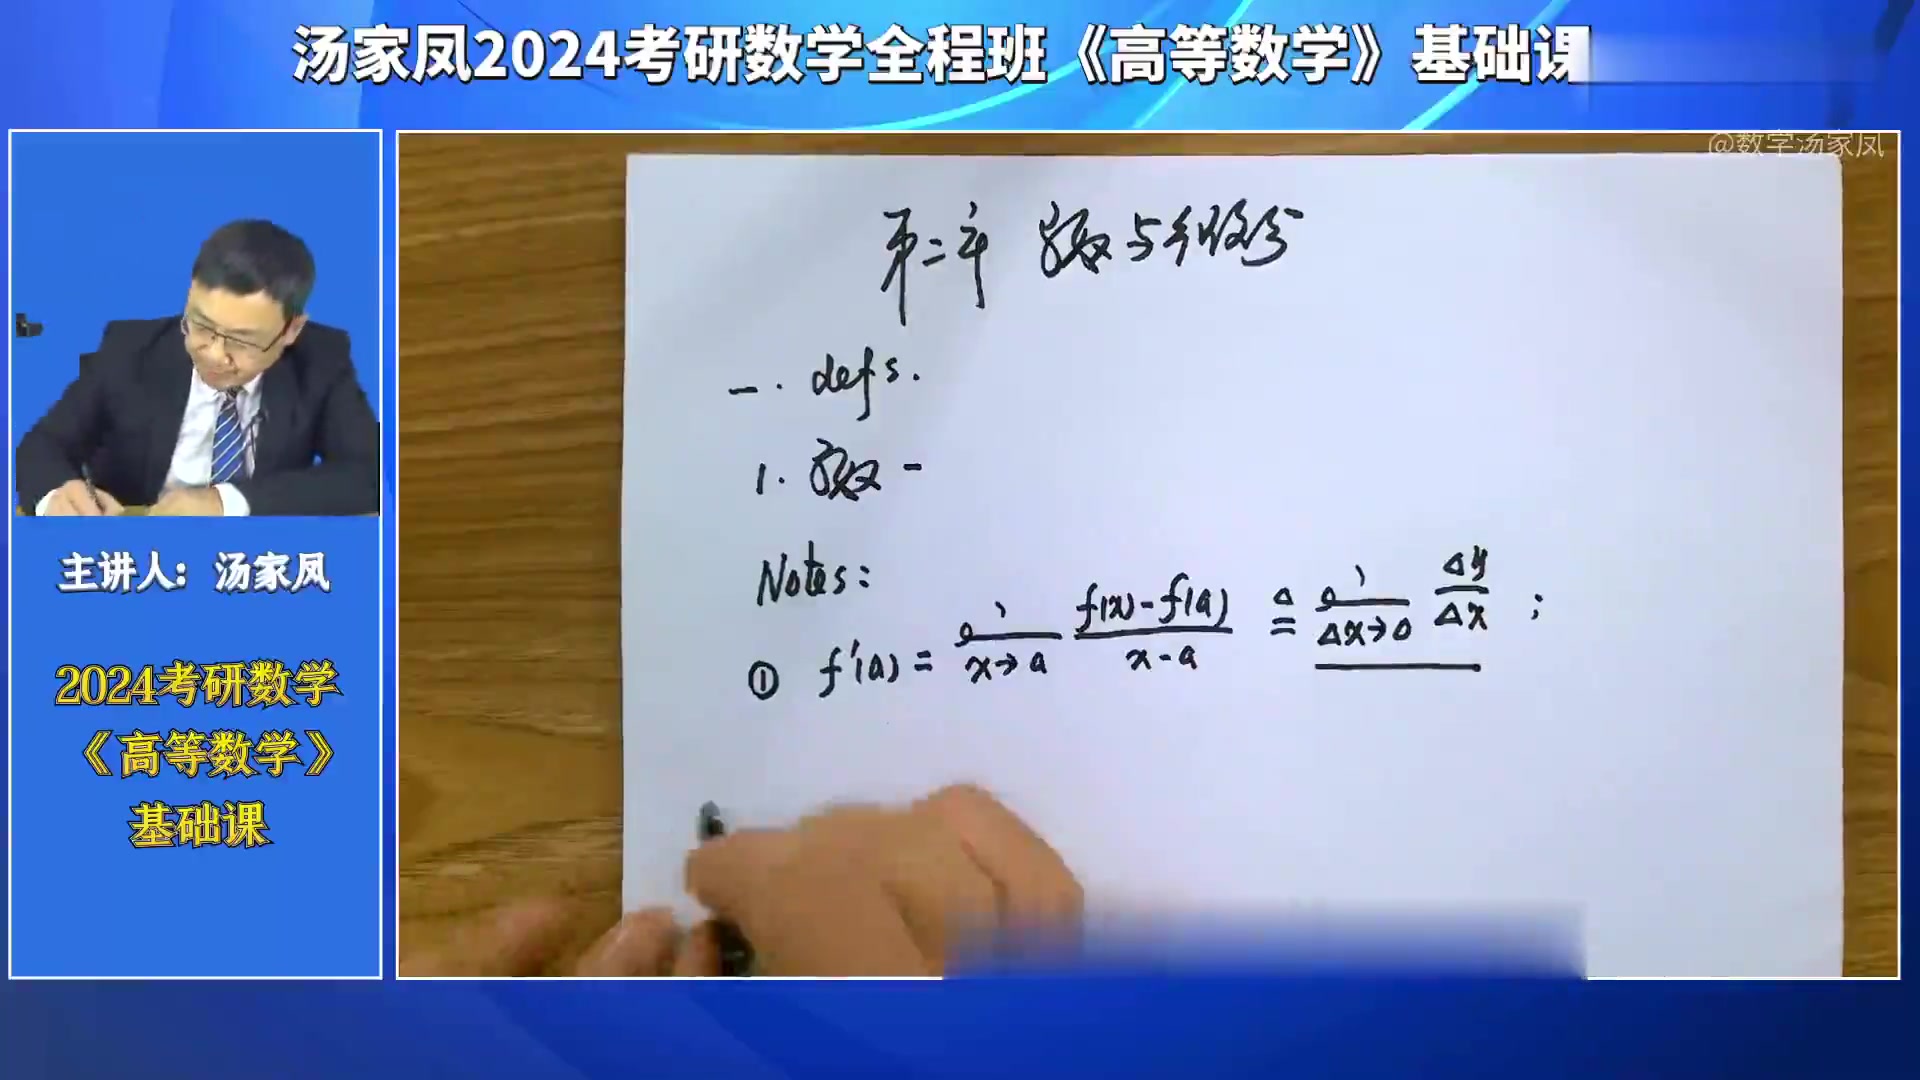 汤家凤2024考研数学全程班《高等数学》基础课
@数学汤家凤
第二章 导数与微分
一. defs.
1. 导数 -
Notes:
① f'(a) = lim x→a (f(x)-f(a))/(x-a) ≜ lim Δx→0 Δy/Δx ;
主讲人：汤家凤
2024考研数学
《高等数学》
基础课